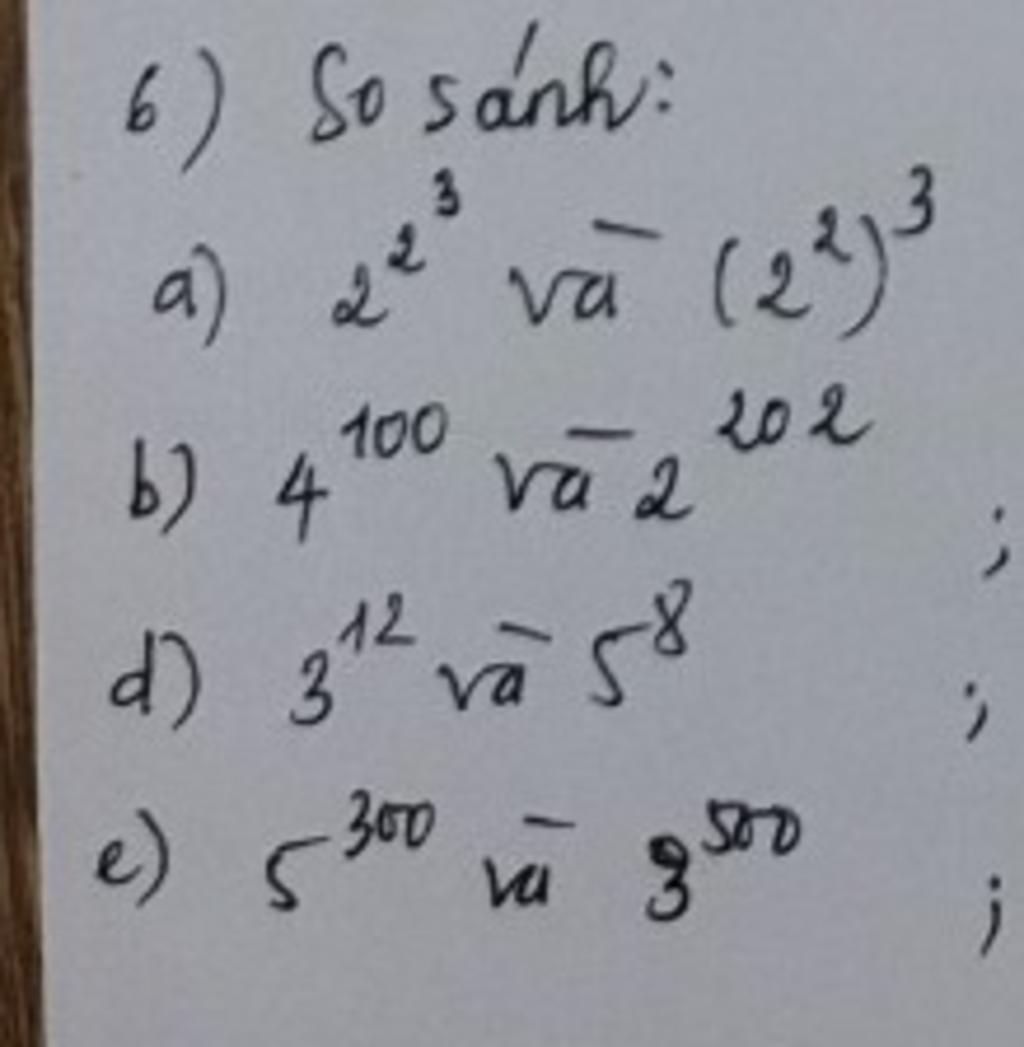 6) So sánh:
a) 2^{2^3} và (2^2)^3
b) 4^{100} và 2^{202} ;
d) 3^{12} và 5^8 ;
e) 5^{300} và 3^{500} ;